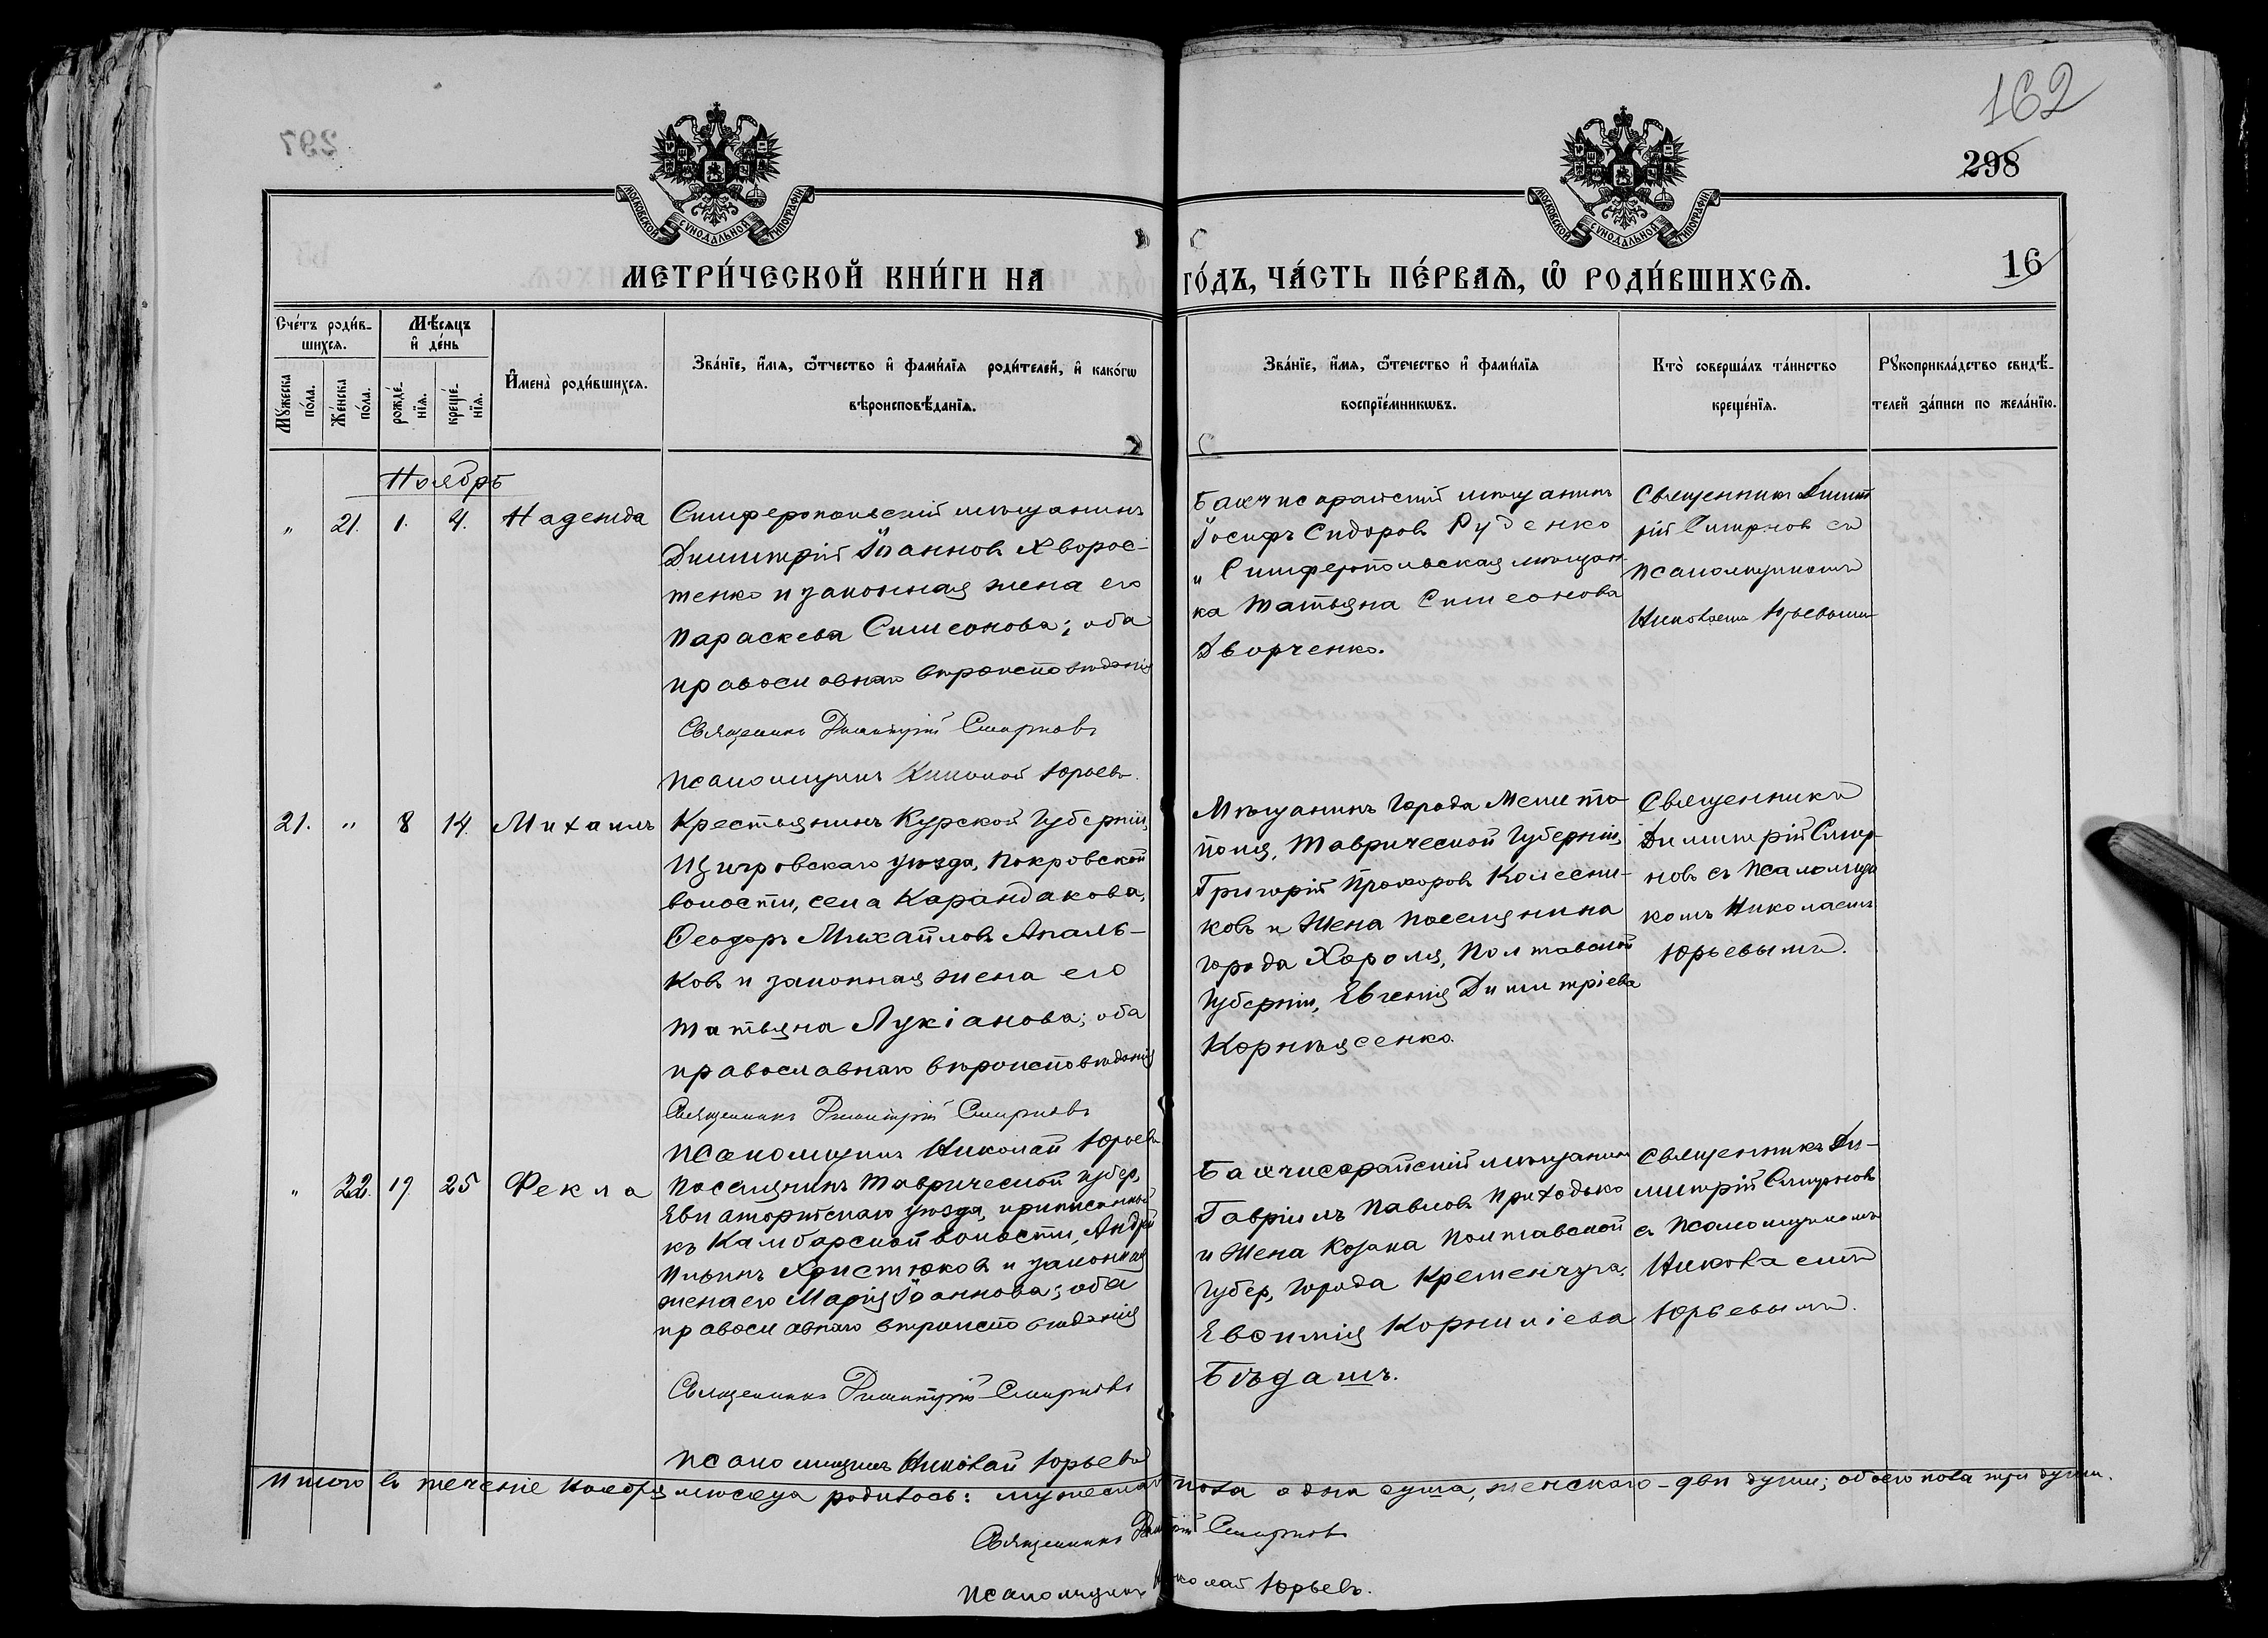 162
298
МОСКОВСКОЙ СУНОДАЛЬНОЙ ТИПОГРАФІИ
МОСКОВСКОЙ СУНОДАЛЬНОЙ ТИПОГРАФІИ
МЕТРИ́ЧЕСКОЙ КНИ́ГИ НА
ГО́ДЪ, ЧА́СТЬ ПЕ́РВАѦ, Ѡ РОДИ́ВШИХСѦ.
16
Сче́тъ роди́в-
шихсѧ.
Мѣ́сѧцъ
и де́нь
Мꙋ́жеска
по́ла.
Же́нска
по́ла.
рожде́-
нїѧ.
креще́-
нїѧ.
Имена̀ роди́вшихсѧ.
Зва́нїе, и́мѧ, ѻ҆́тчество и фами́лїѧ роди́телей, и како́гѡ
вѣроисповѣ́данїѧ.
Зва́нїе, и́мѧ, ѻ҆те́чество и фами́лїѧ
воспрїе́мникѡвъ.
Кто̀ соверша́лъ та́инство
креще́нїѧ.
Рꙋкоприкла́дство свидѣ́-
телей за́писи по жела́нїю.
Ноябрь
" 21. 1. 4. Надежда
Симферопольскій мѣщанинъ
Димитрій Іоанновъ Хворос-
тенко и законная жена его
Параскева Симеонова; оба
православнаго вѣроисповѣданія
Священникъ Димитрій Смирновъ
Псаломщикъ Николай Юрьевъ.
Бахчисарайскій мѣщанинъ
Іосифъ Сидоровъ Руденко
и Симферопольская мѣщан
ка Татьяна Симеонова
Дворченко.
Священникъ Димит
рій Смирновъ съ
псаломщикомъ
Николаемъ Юрьевымъ
21. " 8 14. Михаилъ
Крестьянинъ Курской Губерніи,
Щигровскаго уѣзда, Покровской
волости, села Карандакова,
Ѳеодоръ Михайловъ Апаль-
ковъ и законная жена его
Татьяна Лукіанова; оба
православнаго вѣроисповѣданія
Священникъ Димитрій Смирновъ
Псаломщикъ Николай Юрьевъ
Мѣщанинъ города Мелито-
поля, Таврической Губерніи,
Григорій Прохоровъ Колесни-
ковъ и Жена поселянина
города Хороля, Полтавской
Губерніи, Евгенія Димитріева
Священникъ
Димитрій Смир-
новъ съ Псаломщи
комъ Николаемъ
Юрьевымъ.
" 22. 19 25 Ѳекла
Поселянинъ Таврической губер,
Евпаторійскаго уѣзда, приписанный
къ Камбарской волости, Андрей
Ильинъ Христюковъ и законная
жена его Марія Іоаннова; оба
православнаго вѣроисповѣданія
Священникъ Димитрій Смирновъ
Псаломщикъ Николай Юрьевъ
Бахчисарайскій мѣщанинъ
Гавріилъ Павловъ Приходько
и Жена Козака Полтавской
губер, города Кременчуга,
Евѳимія Корниліева
Бѣдашъ.
Священникъ Ди-
митрій Смирновъ
съ Псаломщикомъ
Николаемъ
Юрьевымъ.
Итого въ теченіе Ноября мѣсяца родилось: мужескаго пола одна душа, женскаго - двѣ души; обоего пола три души.
Священникъ Димитрій Смирновъ
Псаломщикъ Николай Юрьевъ.